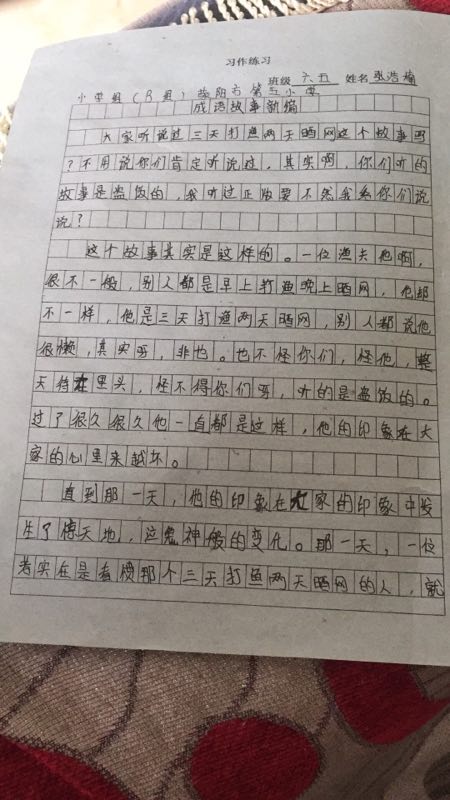 习作练习
班级 六五 姓名 张浩楠
小学组(B组) 荥阳市第三小学
成语故事新编
大家听说过三天打渔两天晒网这个故事吗
?不用说你们肯定听说过,其实啊,你们听的
故事是盗饭的,我听过正版要不然我给你们说
说?
这个故事其实是这样的。一位渔夫他啊,
很不一般,别人都是早上打渔晚上晒网,他却
不一样,他是三天打渔两天晒网,别人都说他
很懒,真实吗,非也。也不怪你们,怪他,整
天待在里头,怪不得你们吗,听的是盗饭的。
过了很久很久他一直都是这样,他的印象在大
家的心里来越坏。
直到那一天,他的印象在大家的印象中发
生了惊天地,泣鬼神般的变化。那一天,一位
老实在是看惯那个三天打鱼两天晒网的人,就